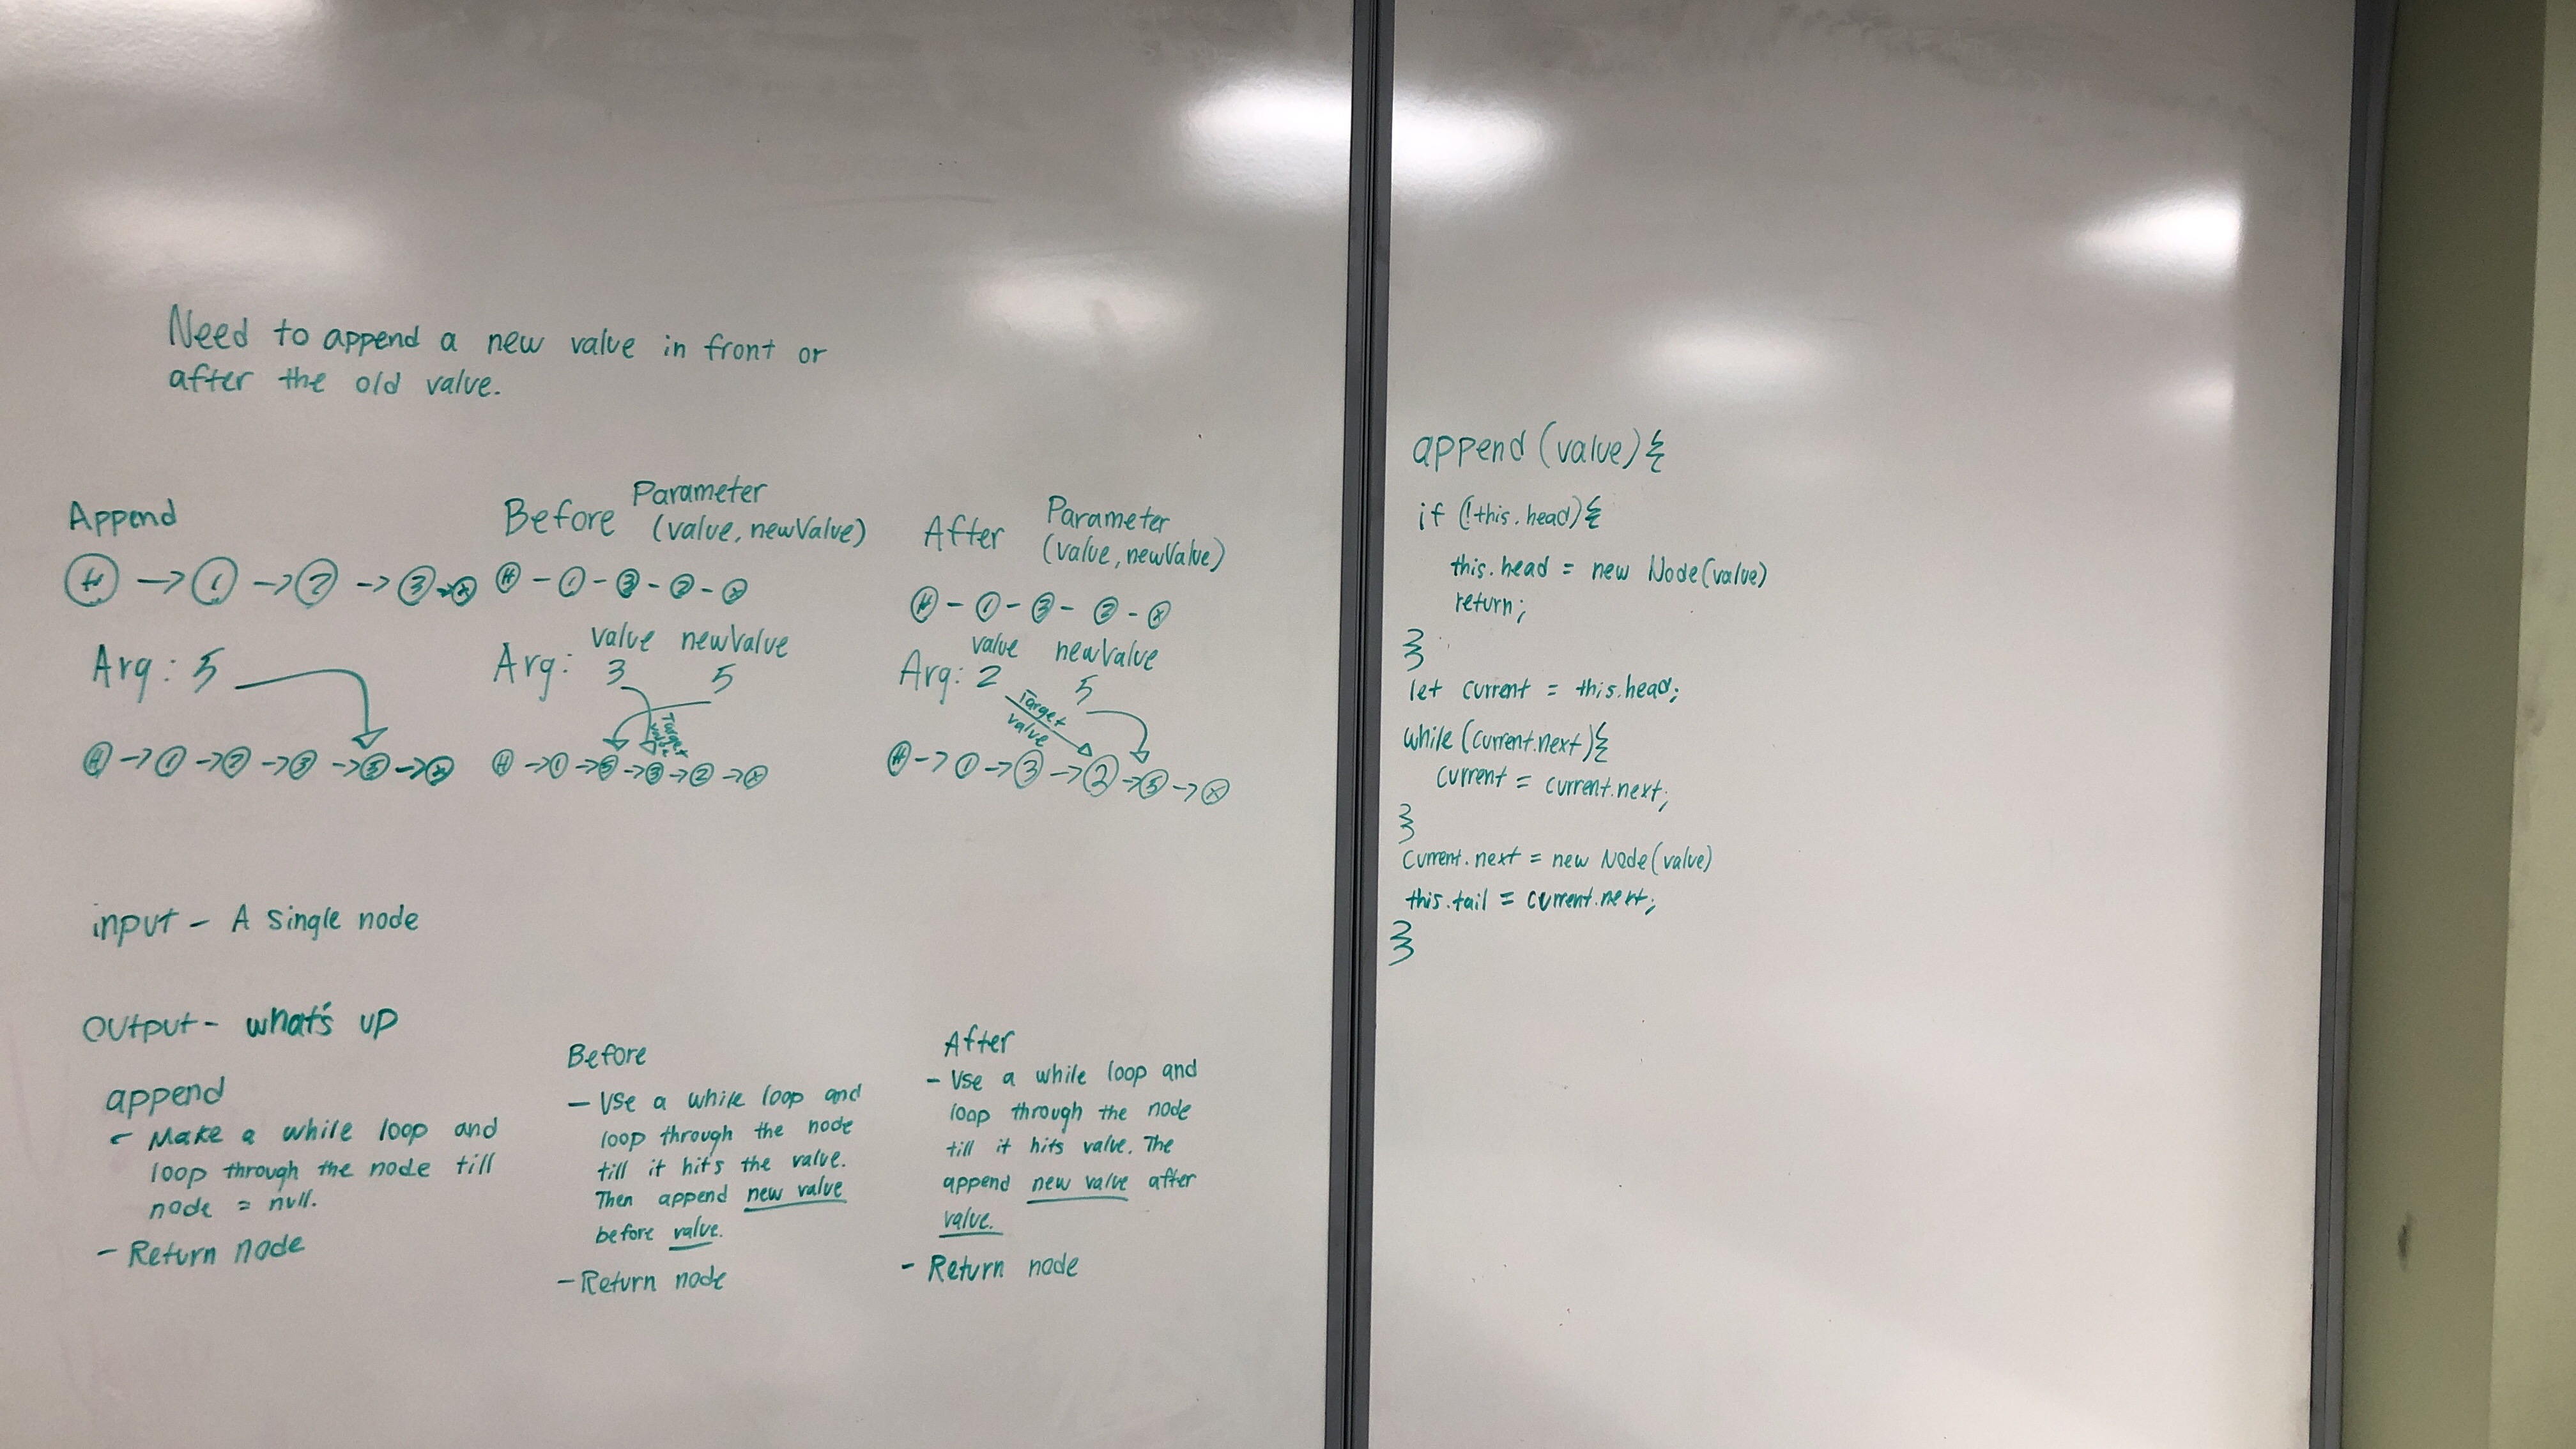 Need to append a new value in front or
after the old value.
Append
H → 1 → 2 → 3 → X
Arg: 5
H → 1 → 2 → 3 → 5 → X
Before Parameter
(value, newValue)
H - 1 - 3 - 2 - X
value newValue
Arg: 3 5
Target
value
H → 1 → 5 → 3 → 2 → X
After Parameter
(value, newValue)
H - 1 - 3 - 2 - X
value newValue
Arg: 2 5
Target
value
H → 1 → 3 → 2 → 5 → X
input - A single node
output - what's up
append
- Make a while loop and
loop through the node till
node = null.
- Return node
Before
- Use a while loop and
loop through the node
till it hits the value.
Then append new value
before value.
- Return node
After
- Use a while loop and
loop through the node
till it hits value. The
append new value after
value.
- Return node
append (value) {
if (!this.head) {
this.head = new Node(value)
return;
}
let current = this.head;
while (current.next) {
current = current.next;
}
current.next = new Node(value)
this.tail = current.next;
}